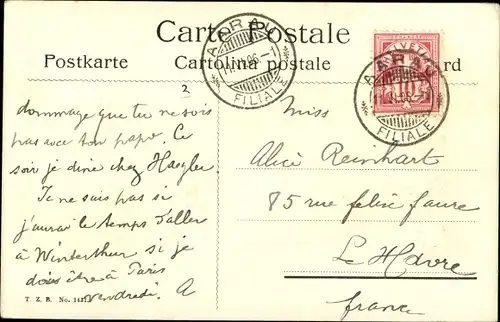 Carte Postale
Postkarte Cartolina postale
AARAU
FILIALE
HELVETIA
10
AARAU
FILIALE
2
dommage que tu ne sois
pas avec ton papa. Ce
soir je dine chez Haegler
Je ne sais pas si
j'aurai le temps d'aller
à Winterthur si je
dois être à Paris
vendredi. A
T. Z. B. No.
Miss
Alice Reinhart
85 rue félix faure
Le Havre
france